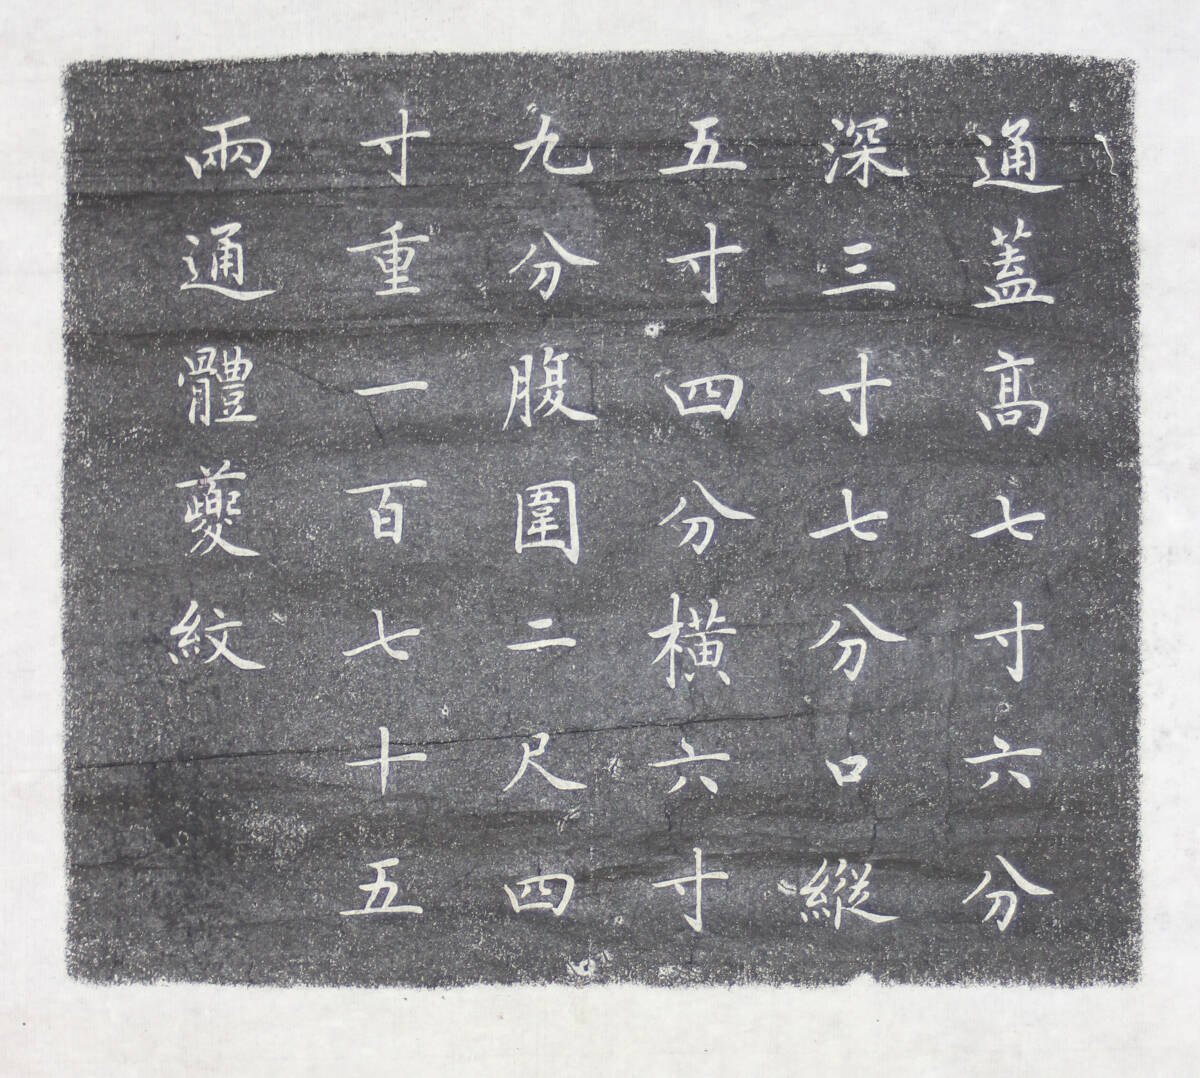 通蓋高七寸六分
深三寸七分口縱
五寸四分橫六寸
九分腹圍二尺四
寸重一百七十五
兩通體夔紋